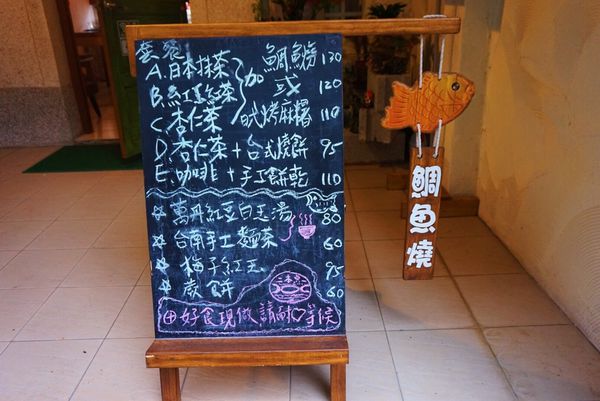 套餐
A.日本抹茶 加 鯛魚燒 130
B.紅玉紅茶 或 120
C.杏仁茶 日式烤麻糬 110
D.杏仁茶+台式燒餅 95
E.咖啡+手工餅乾 110
☆萬丹紅豆白玉湯 80
☆台南手士麵茶 60
☆梅子紅玉 95
☆歲餅 60
田好食現做請耐心等候
鯛魚燒